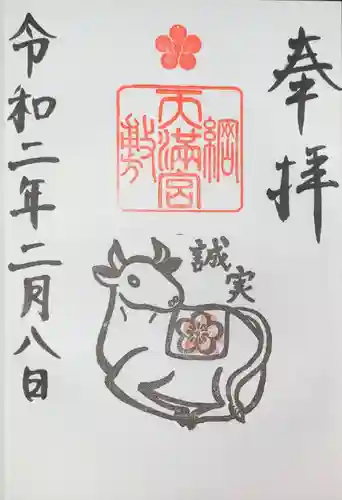 奉拝
綱敷天満宮
誠実
令和二年二月八日